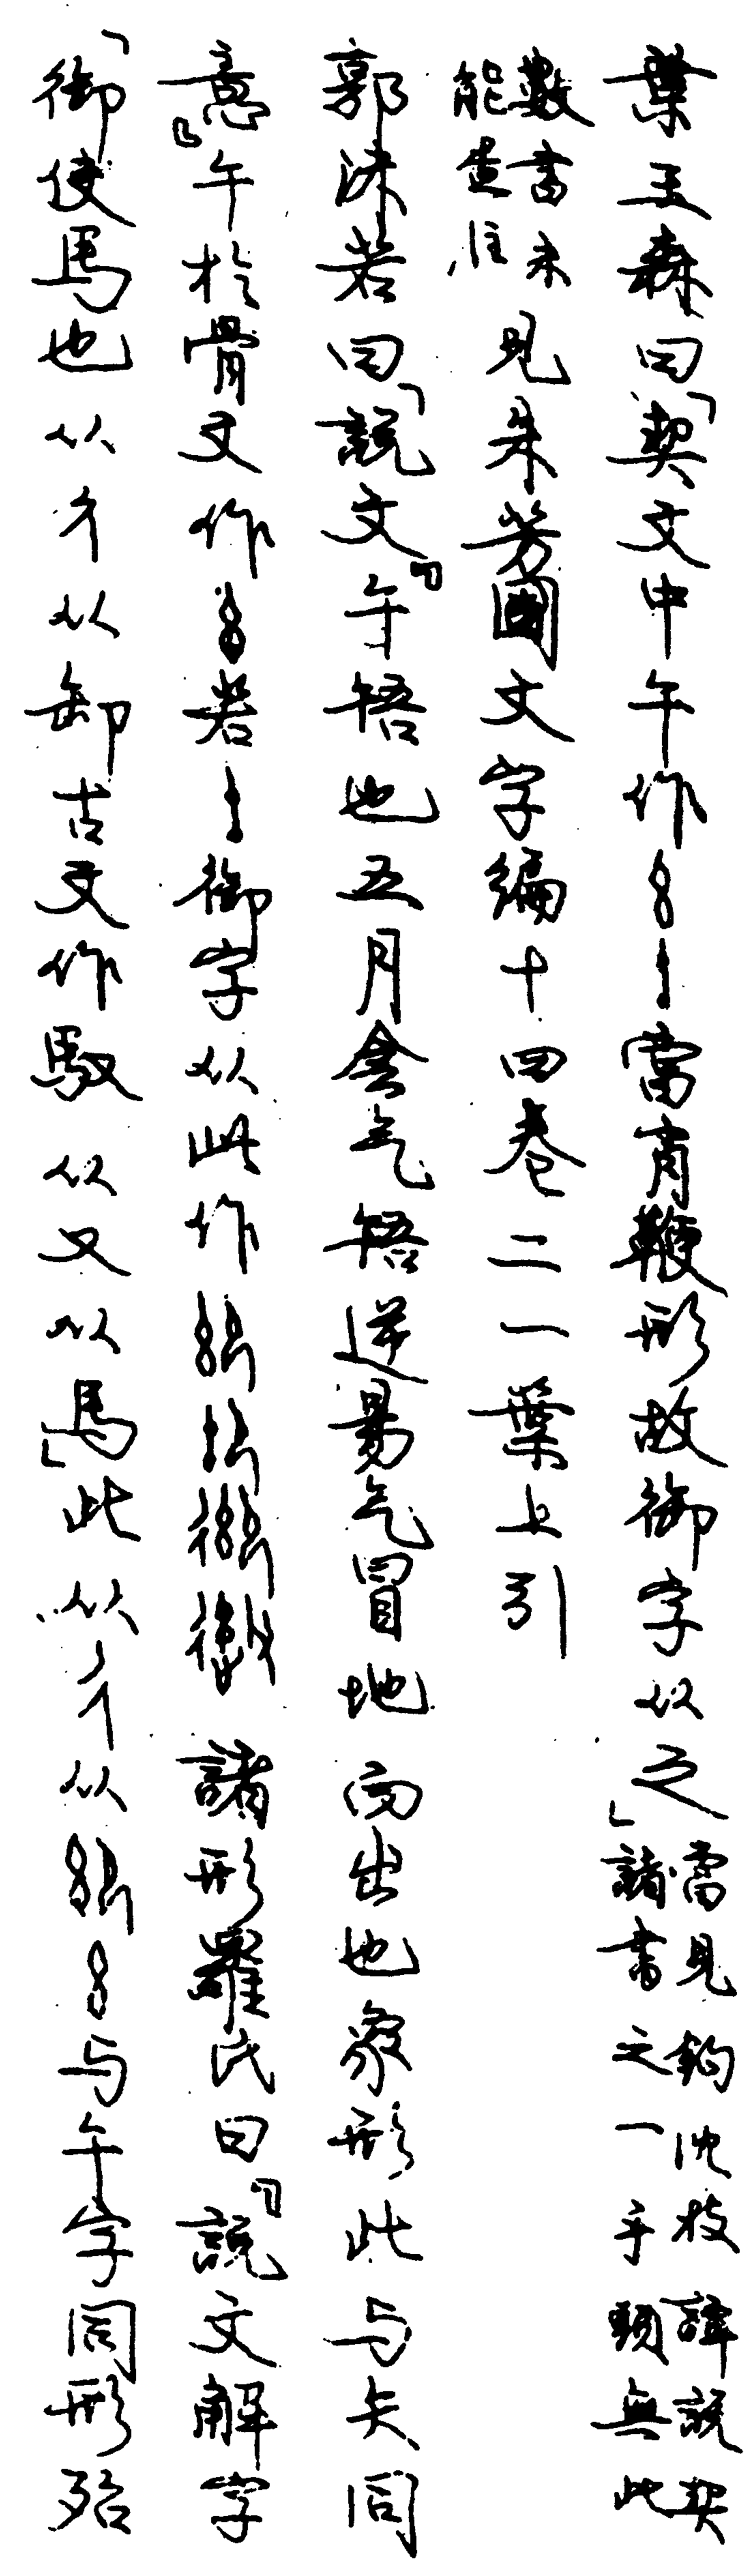 葉玉森曰「契文中午作當肖鞭形故御字从之」當見鉤沈枝譚說契諸書之一手頭無此
數書未能查注見朱芳圃文字編十四卷二一葉上引
郭沫若曰「說文『午啎也五月侌气啎逆昜气冒地而出也象形此与矢同
意』午於骨文作若御字从此作諸形羅氏曰『說文解字
「御使馬也从彳从卸古文作馭从又从馬」此从彳从与午字同形殆